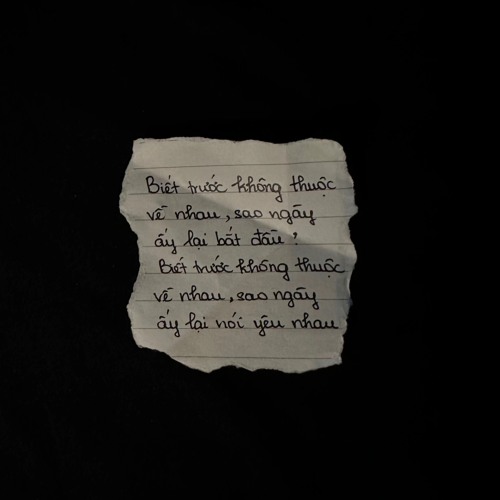 Biết trước không thuộc
về nhau, sao ngày
ấy lại bắt đầu?
Biết trước không thuộc
về nhau, sao ngày
ấy lại nói yêu nhau